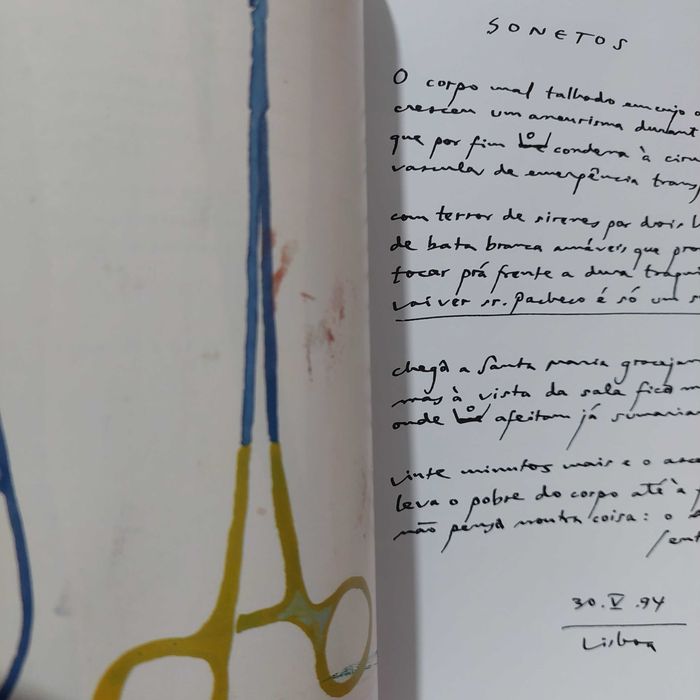 SONETOS
O corpo mal talhado em cujo
cresceu um aneurisma durant
que por fim o condena à ciru
vascular de emergência transp
com terror de sirenes por dois
de bata branca amáveis que pro
tocar prá frente a dura traqui
vai ver sr. Pacheco é só um s
chega a Santa maria gracejam
mas à vista da sala fica m
onde o afeitam já sumaria
vinte minutos mais e o asce
leva o pobre do corpo até à
não pensa noutra coisa: o
sent
30.V.94
Lisboa